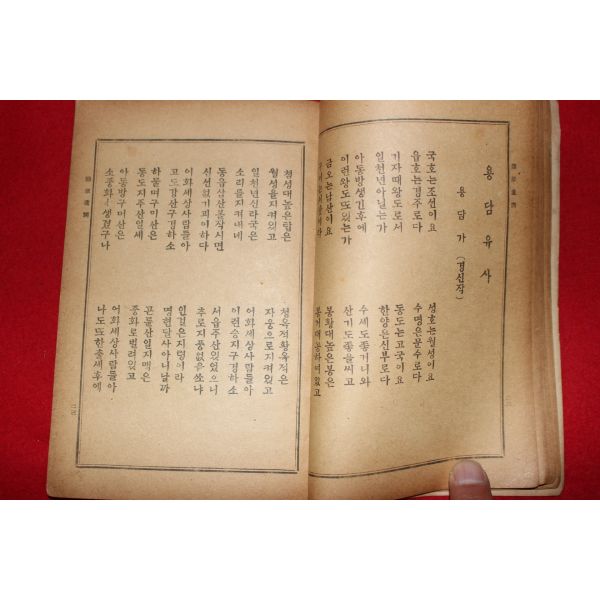 용담유사
용담가 (경신작)
국호는조선이요 성호는월성이요
읍호는경주로다 수명은문수로다
기자때왕도로서 동도는고국이요
일천년아닐는가 한양은신부로다
아동방생긴후에 수세도좋거니와
이런왕도또있는가 산기도좋을씨고
금오는남산이요 봉황대높은봉은
봉거대공하여있고
첨성대높은탑은 청옥적황옥적은
월성을지켜있고 자웅으로지켜있고
일천년신라국은 어화세상사람들아
소리를지켜내네 이런승지구경하소
동읍삼산볼작시면 서읍주산있었으니
신선없기괴이하다 추로지풍없을쏘냐
어화세상사람들아 인걸은지령이라
고도강산구경하소 명현달사아니날까
하물며구미산은 곤륜산일지맥은
동도지주산일세 중화로벌려있고
아동방구미산은 어화세상사람들아
소중화생겼구나 나도또한출세후에